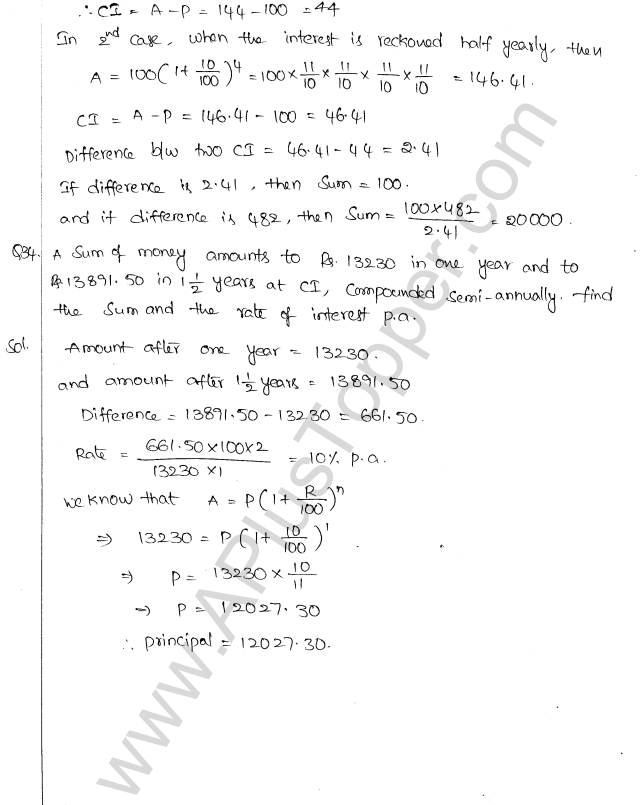 ∴ CI = A - P = 144 - 100 = 44
In 2nd case, when the interest is reckoned half yearly, then
A = 100(1 + 10/100)^4 = 100 × 11/10 × 11/10 × 11/10 × 11/10 = 146.41.
CI = A - P = 146.41 - 100 = 46.41
Difference b/w two CI = 46.41 - 44 = 2.41
If difference is 2.41, then Sum = 100.
and if difference is 482, then Sum = 100×482/2.41 = 20000.
Q34. A Sum of money amounts to Rs. 13230 in one year and to
Rs 13891.50 in 1 1/2 years at CI, compounded semi-annually. find
the Sum and the rate of interest p.a.
Sol. Amount after one year = 13230.
and amount after 1 1/2 years = 13891.50
Difference = 13891.50 - 13230 = 661.50.
Rate = 661.50×100×2/13230×1 = 10% p.a.
we know that A = P(1 + R/100)^n
⇒ 13230 = P(1 + 10/100)^1
⇒ P = 13230 × 10/11
⇒ P = 12027.30
∴ principal = 12027.30.
www.APlusTopper.com